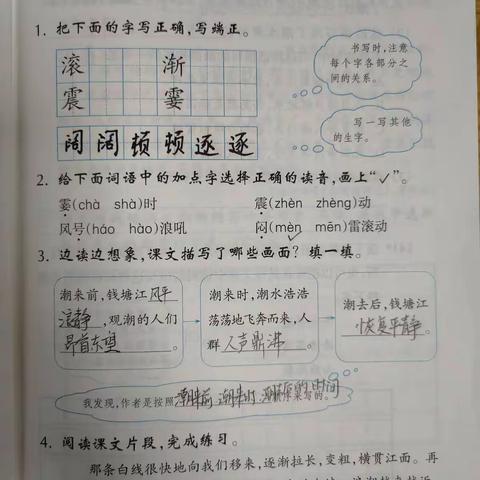 1. 把下面的字写正确，写端正。
滚 渐
震 霎
书写时，注意
每个字各部分之
间的关系。
阔 阔 顿 顿 逐 逐
写一写其他
的生字。
2. 给下面词语中的加点字选择正确的读音，画上“✓”。
霎(chà shà)时 震(zhèn zhèng)动
风号(háo hào)浪吼 闷(mèn mēn)雷滚动
3. 边读边想象，课文描写了哪些画面？填一填。
潮来前，钱塘江风平
浪静，观潮的人们
昂首东望。
潮来时，潮水浩浩
荡荡地飞奔而来，人
群人声鼎沸。
潮去后，钱塘江
恢复平静。
我发现，作者是按照潮来前、潮来时、潮来后的时间 写的。
4. 阅读课文片段，完成练习。
那条白线很快地向我们移来，逐渐拉长，变粗，横贯江面。再